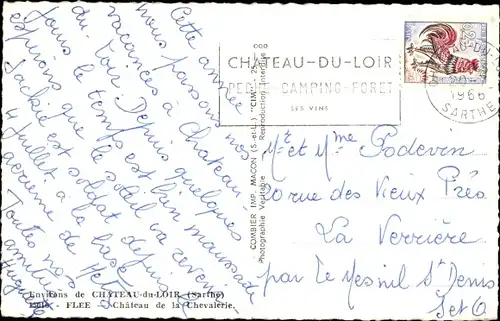 Cette année
nous passons nos
vacances à Château
du Loir. Depuis quelques
jours le temps est bien maussade
espérons que le soleil va revenir
Jackie est soldat depuis
4 juillet à la base
aérienne de Metz
Toutes nos
amitiés
Huguette
CHÂTEAU-DU-LOIR
PECHE-CAMPING-FORET
SES VINS
1966
SARTHE
COMBIER IMP. MACON (S.-et-L.) "CIM"
Photographie Véritable Reproduction Interdite
Mr et Mme Podevin
rue des Vieux Prés
La Verrière
par le Mesnil St Denis
S et O
Environs de CHATEAU-du-LOIR (Sarthe)
FLEE - Château de la Chevalerie.